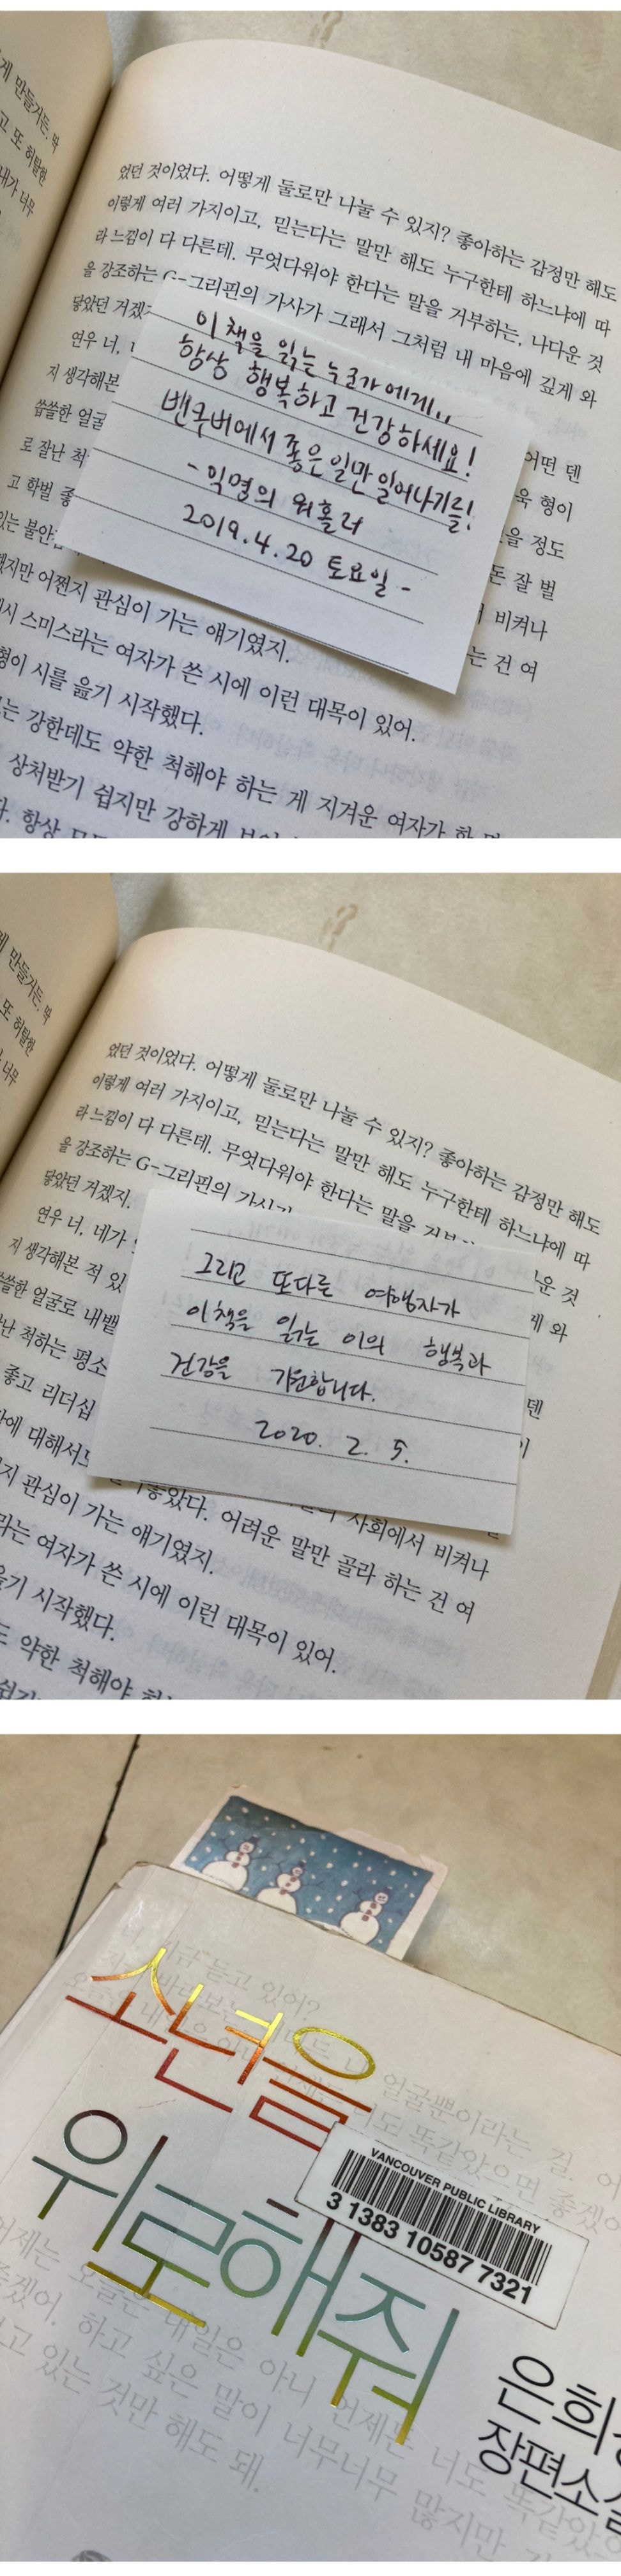 게 만들거든. 딱
고 또 허탈한
내가 너무
었던 것이었다. 어떻게 둘로만 나눌 수 있지? 좋아하는 감정만 해도
이렇게 여러 가지이고, 믿는다는 말만 해도 누구한테 하느냐에 따
라 느낌이 다 다른데. 무엇다워야 한다는 말을 거부하는, 나다운 것
을 강조하는 G-그리핀의 가사가 그래서 그처럼 내 마음에 깊게 와
닿았던 거겠
연우 너,
지 생각해본
씁쓸한 얼굴
로 잘난 척
고 학벌 좋
있는 불안
어떤 덴
욱 형이
을 정도
돈 잘 벌
비켜나
는 건 여
이 책을 읽는 누군가에게..
항상 행복하고 건강하세요!
밴쿠버에서 좋은 일만 일어나기를!
- 익명의 워홀러
2019.4.20 토요일 -
겠지만 어쩐지 관심이 가는 얘기였지.
시 스미스라는 여자가 쓴 시에 이런 대목이 있어.
형이 시를 읊기 시작했다.
는 강한데도 약한 척해야 하는 게 지겨운 여자가 한
상처받기 쉽지만 강하게
. 항상
게 만들거든. 딱
또 허탈한
너무
었던 것이었다. 어떻게 둘로만 나눌 수 있지? 좋아하는 감정만 해도
이렇게 여러 가지이고, 믿는다는 말만 해도 누구한테 하느냐에 따
라 느낌이 다 다른데. 무엇다워야 한다는 말을
운 것
을 강조하는 G-그리핀의
게 와
닿았던 거겠지.
연우 너, 네가
지 생각해본 적 있
쓸쓸한 얼굴로 내뱉
난 척하는 평소
좋고 리더십
에 대해서
덴
그리고 또다른 여행자가
이 책을 읽는 이의 행복과
건강을 기원합니다.
2020. 2. 5.
사회에서 비켜나
지 관심이 가는 얘기였지.
않았다. 어려운 말만 골라 하는 건 여
라는 여자가 쓴 시에 이런 대목이 있어.
읊기 시작했다.
도 약한 척해야
소년을
위로해줘
VANCOUVER PUBLIC LIBRARY
3 1383 10587 7321
은희
장편소설
듣고 있어?
얼굴뿐이라는 걸.
너도 똑같았으면 좋겠어
내일은 아니 언제든 너도 똑같았으
좋겠어. 하고 싶은 말이 너무너무 많지만
고 있는 것만 해도 돼.